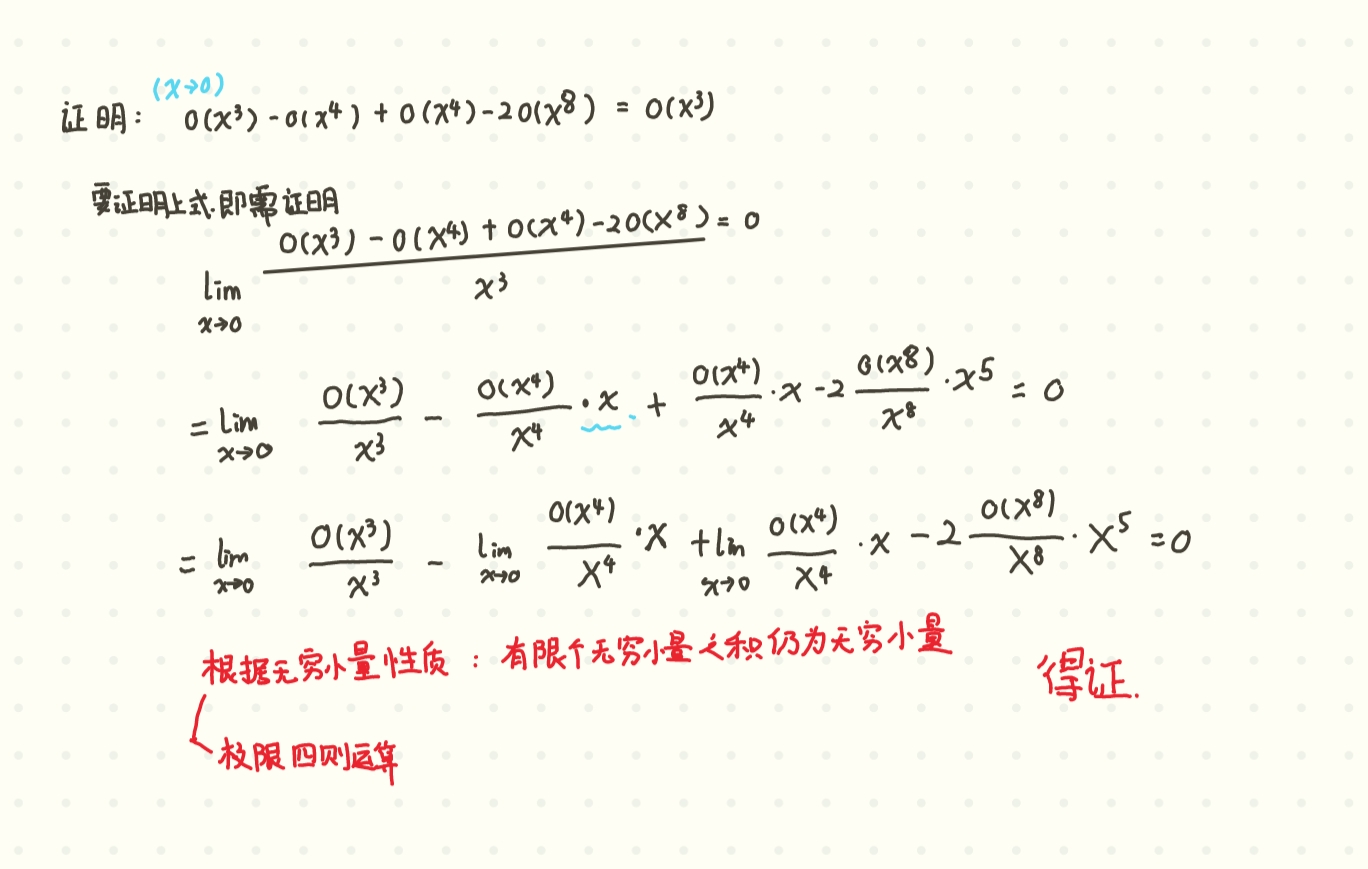 (x→0)
证明: o(x³)-o(x⁴)+o(x⁴)-2o(x⁸) = o(x³)
要证明上式.即需证明
lim x→0 \frac{o(x³)-o(x⁴)+o(x⁴)-2o(x⁸)}{x³} = 0
= lim x→0 \frac{o(x³)}{x³} - \frac{o(x⁴)}{x⁴}·x + \frac{o(x⁴)}{x⁴}·x - 2\frac{o(x⁸)}{x⁸}·x⁵ = 0
= lim x→0 \frac{o(x³)}{x³} - lim x→0 \frac{o(x⁴)}{x⁴}·x + lim x→0 \frac{o(x⁴)}{x⁴}·x - 2\frac{o(x⁸)}{x⁸}·x⁵ = 0
根据无穷小量性质: 有限个无穷小量之积仍为无穷小量
得证.
极限四则运算